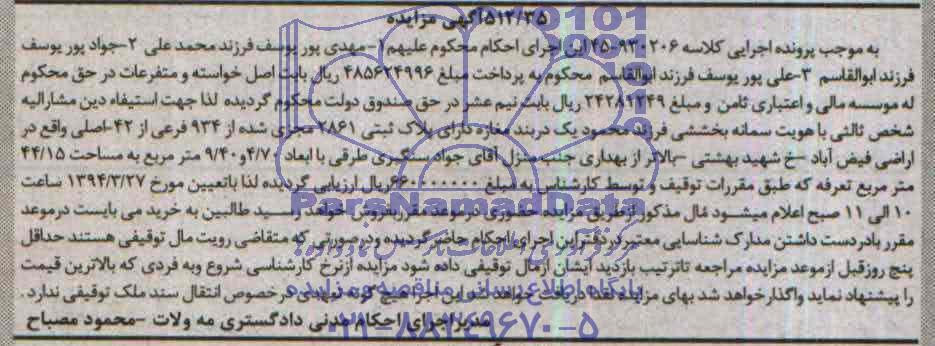 ۵۱۲/۳۵ آگهی مزایده
به موجب پرونده اجرایی کلاسه ۹۳۰۲۰۶-۴۵ این اجرای احکام محکوم علیهم ۱-مهدی پور یوسف فرزند محمد علی ۲-جواد پور یوسف
فرزند ابوالقاسم ۳-علی پور یوسف فرزند ابوالقاسم محکوم به پرداخت مبلغ ۴۸۵۶۲۴۹۹۶ ریال بابت اصل خواسته و متفرعات در حق محکوم
له موسسه مالی و اعتباری ثامن و مبلغ ۲۴۲۸۹۲۴۹ ریال بابت نیم عشر در حق صندوق دولت محکوم گردیده لذا جهت استیفاء دین مشارالیه
شخص ثالثی با هویت سمانه بخششی فرزند محمود یک دربند مغازه دارای پلاک ثبتی ۲۸۶۱ مجزی شده از ۹۳۴ فرعی از ۴۲-اصلی واقع در
اراضی فیض آباد -خ شهید بهشتی -بالاتر از بهداری جنب منزل آقای جواد سنگبری طرقی با ابعاد ۴/۷۰و۹/۴۰ متر مربع به مساحت ۴۴/۱۵
متر مربع تعرفه که طبق مقررات توقیف و توسط کارشناس به مبلغ ۶۶۰۰۰۰۰۰۰ریال ارزیابی گردیده لذا باتعیین مورخ ۱۳۹۴/۳/۲۷ ساعت
۱۰ الی ۱۱ صبح اعلام میشود مال مذکور ازطریق مزایده حضوری درموعد مقرربفروش خواهد رسید طالبین به خرید می بایست درموعد
مقرر بادردست داشتن مدارک شناسایی معتبردردفتراین اجرای احکام حاضرگردیده ودرصورتی که متقاضی رویت مال توقیفی هستند حداقل
پنج روزقبل ازموعد مزایده مراجعه تاترتیب بازدید ایشان ازمال توقیفی داده شود مزایده ازنرخ کارشناسی شروع وبه فردی که بالاترین قیمت
را پیشنهاد نماید واگذارخواهد شد بهای مزایده نقدا دریافت خواهد شد این اجرا هیچ گونه تعهدی درخصوص انتقال سند ملک توقیفی ندارد.
مدیراجرای احکام مدنی دادگستری مه ولات -محمود مصباح
ParsNamadData
پایگاه اطلاع رسانی مناقصه و مزایده
۰۲۱-۸۸۳۴۹۶۷۰-۵